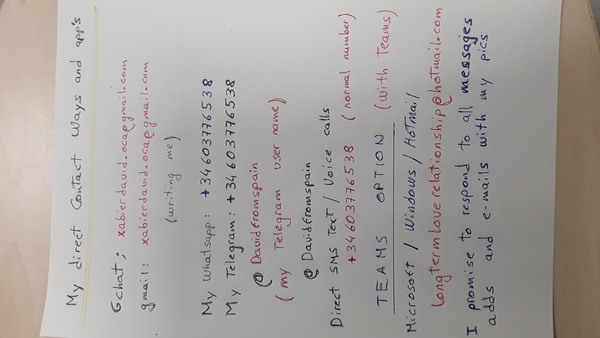 My direct Contact Ways and app's
Gchat; xabierdavid.oca@gmail.com
gmail: xabierdavid.oca@gmail.com
(writing me)
My Whatsapp: +34603776538
My Telegram: +34603776538
@Davidfromspain
(my Telegram user name)
@Davidfromspain
Direct SMS Text / Voice calls
+34603776538 (normal number)
TEAMS OPTION (with Teams)
Microsoft / Windows / HoTmail
Longtermloverelationship@hotmail.com
I promise to respond to all messages
adds and e-mails with my pics